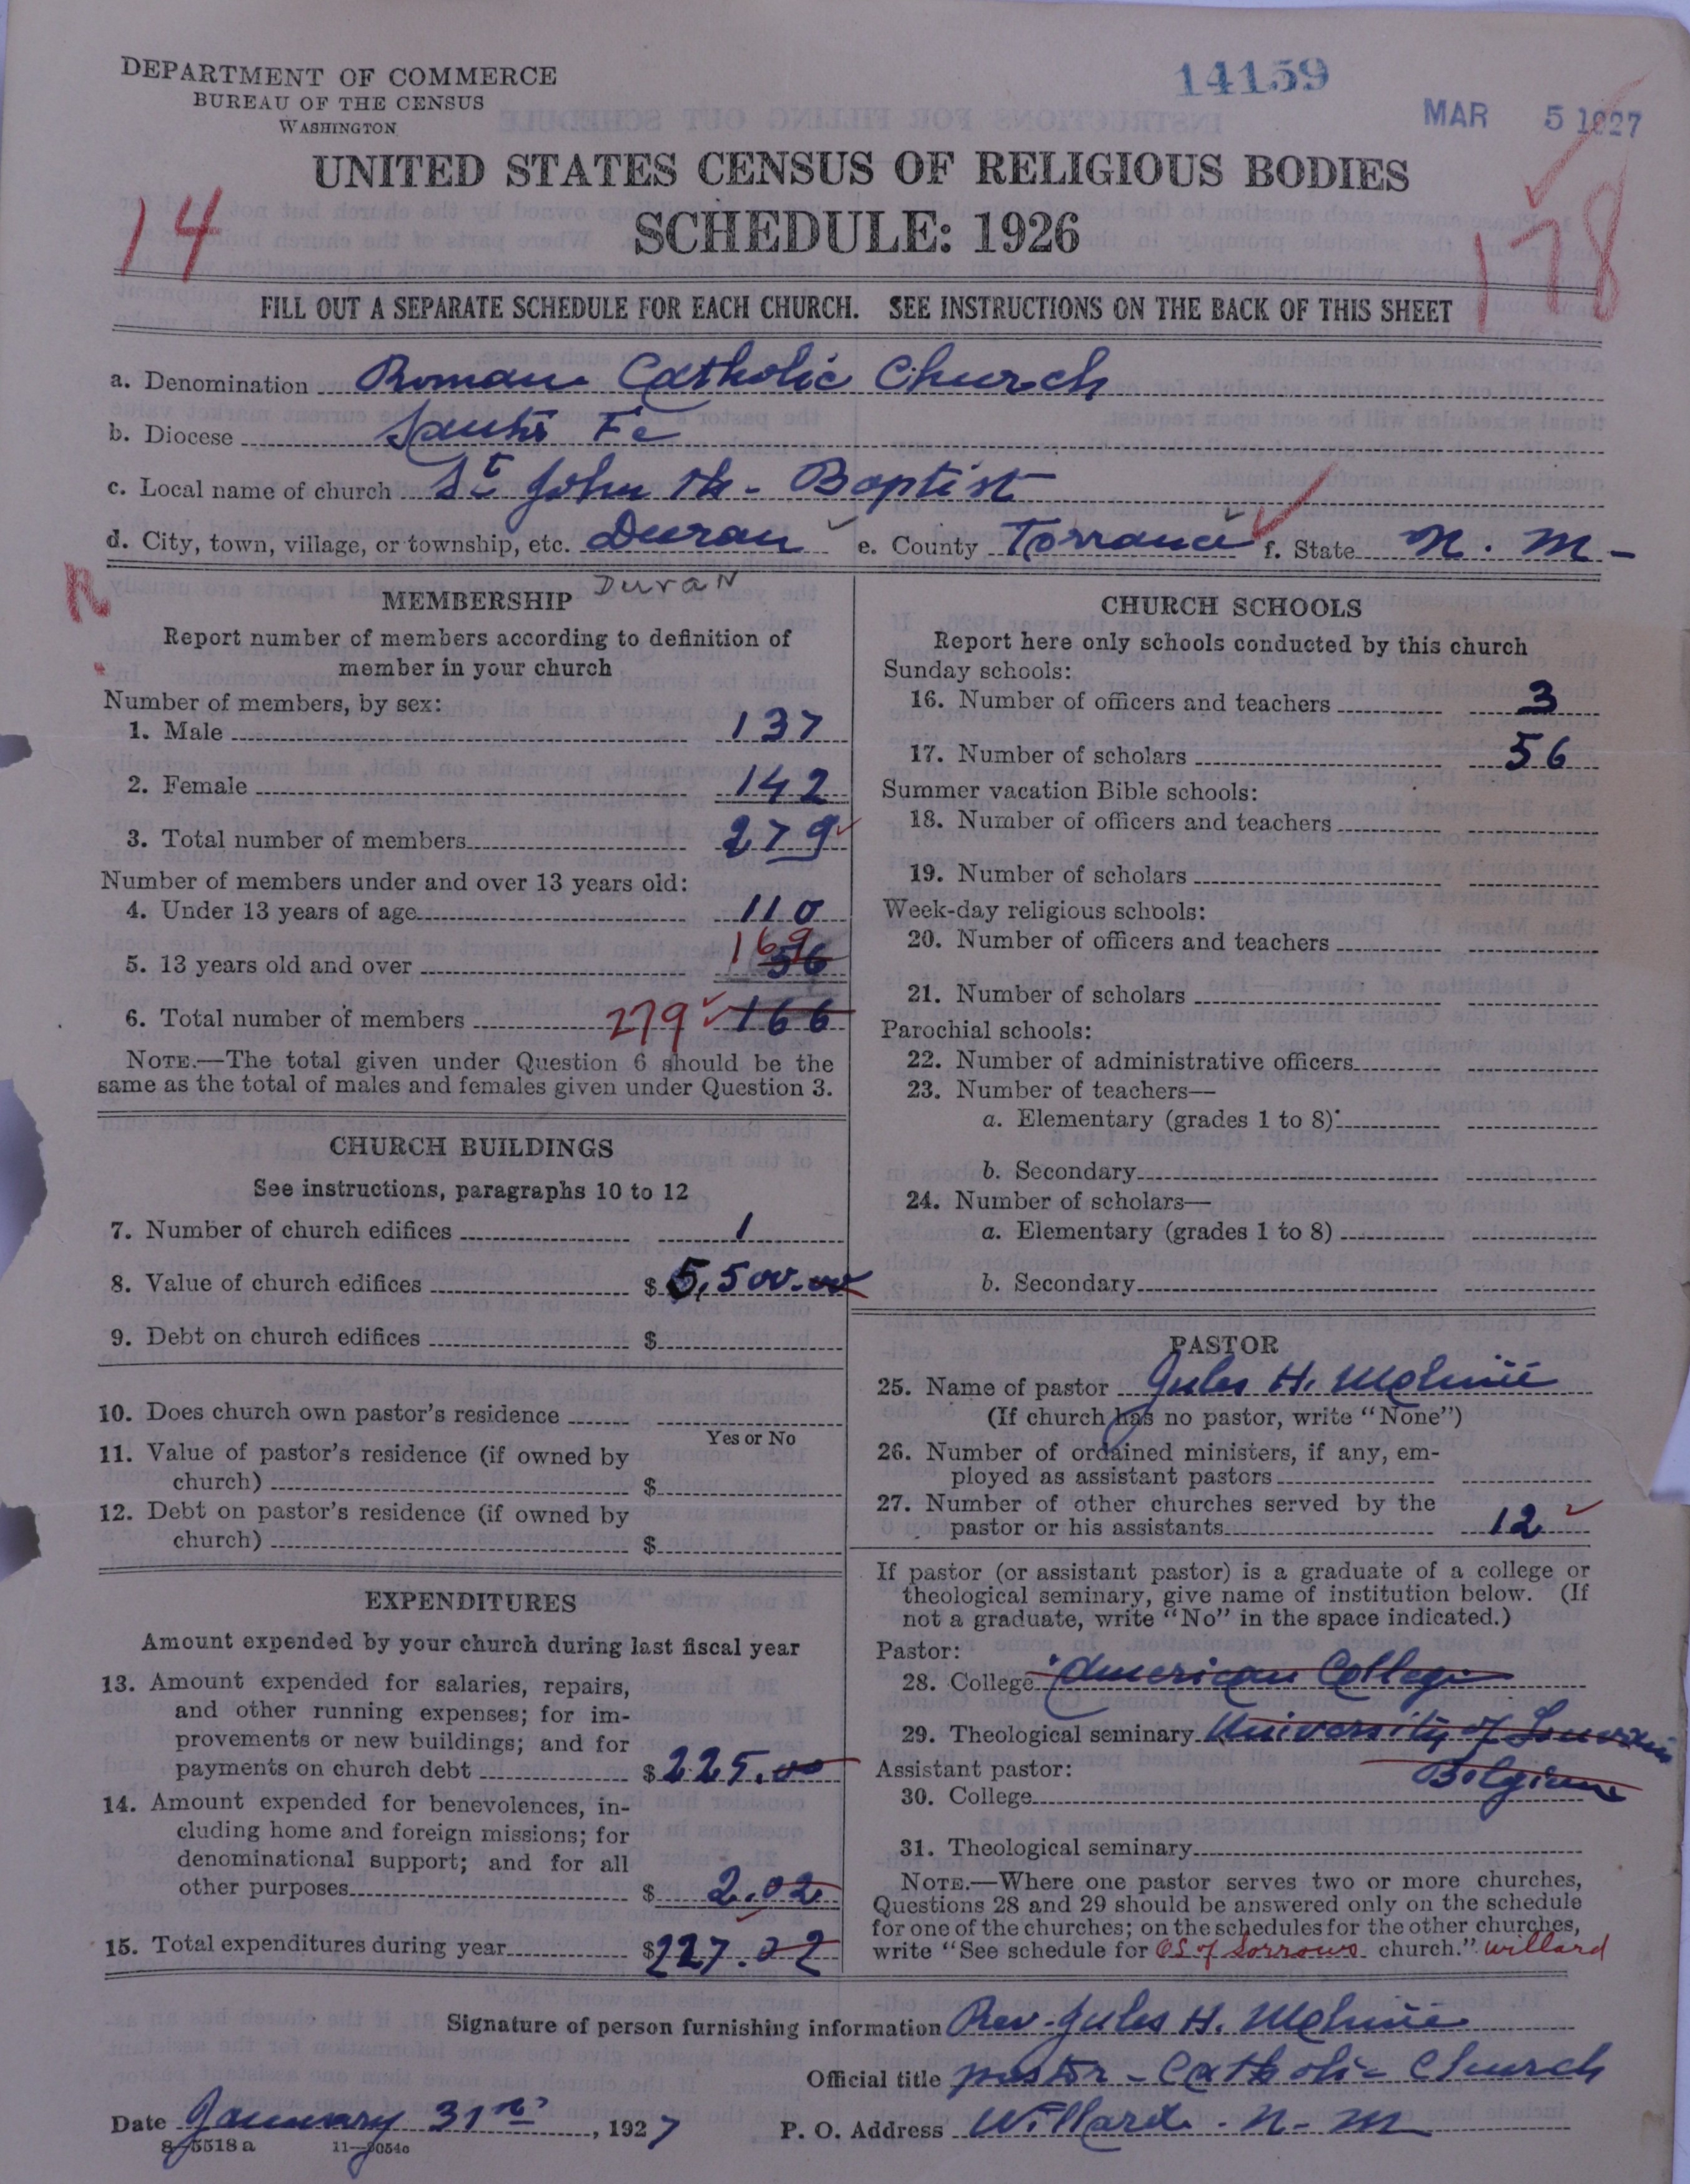 DEPARTMENT OF COMMERCE
BUREAU OF THE CENSUS
WASHINGTON
14159
MAR 5 1927
UNITED STATES CENSUS OF RELIGIOUS BODIES
SCHEDULE: 1926
14
178
FILL OUT A SEPARATE SCHEDULE FOR EACH CHURCH. SEE INSTRUCTIONS ON THE BACK OF THIS SHEET
a. Denomination Roman Catholic Church
b. Diocese Santa Fe
c. Local name of church St John the - Baptist
d. City, town, village, or township, etc. Duran e. County Torrance f. State N. M -
Duran
R
MEMBERSHIP
Report number of members according to definition of
member in your church
Number of members, by sex:
1. Male 137
2. Female 142
3. Total number of members 279
Number of members under and over 13 years old:
4. Under 13 years of age 110
5. 13 years old and over 169 56
6. Total number of members 279 166
NOTE.—The total given under Question 6 should be the
same as the total of males and females given under Question 3.
CHURCH BUILDINGS
See instructions, paragraphs 10 to 12
7. Number of church edifices 1
8. Value of church edifices $ 5,500.00
9. Debt on church edifices $
10. Does church own pastor's residence
Yes or No
11. Value of pastor's residence (if owned by
church) $
12. Debt on pastor's residence (if owned by
church) $
EXPENDITURES
Amount expended by your church during last fiscal year
13. Amount expended for salaries, repairs,
and other running expenses; for im-
provements or new buildings; and for
payments on church debt $ 225.00
14. Amount expended for benevolences, in-
cluding home and foreign missions; for
denominational support; and for all
other purposes $ 2.02
15. Total expenditures during year $ 227.02
CHURCH SCHOOLS
Report here only schools conducted by this church
Sunday schools:
16. Number of officers and teachers 3
17. Number of scholars 56
Summer vacation Bible schools:
18. Number of officers and teachers
19. Number of scholars
Week-day religious schools:
20. Number of officers and teachers
21. Number of scholars
Parochial schools:
22. Number of administrative officers
23. Number of teachers—
a. Elementary (grades 1 to 8)
b. Secondary
24. Number of scholars—
a. Elementary (grades 1 to 8)
b. Secondary
PASTOR
25. Name of pastor Jules H. Molinié
(If church has no pastor, write "None")
26. Number of ordained ministers, if any, em-
ployed as assistant pastors
27. Number of other churches served by the
pastor or his assistants 12
If pastor (or assistant pastor) is a graduate of a college or
theological seminary, give name of institution below. (If
not a graduate, write "No" in the space indicated.)
Pastor:
28. College American College
29. Theological seminary University of Louvain
Assistant pastor: Belgium
30. College
31. Theological seminary
NOTE.—Where one pastor serves two or more churches,
Questions 28 and 29 should be answered only on the schedule
for one of the churches; on the schedules for the other churches,
write "See schedule for of Sorrows church." Willard
Signature of person furnishing information Rev. Jules H. Molinié
Official title pastor - Catholic Church
Date January 31st, 1927 P. O. Address Willard. N. M
8-5518a 11-9054c